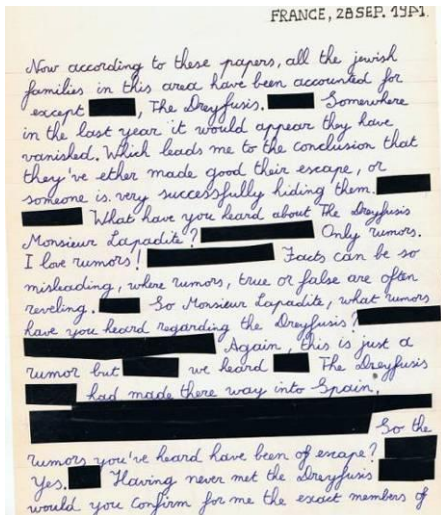 FRANCE, 28 SEP. 1941.
Now according to these papers, all the jewish
families in this area have been accounted for
except , The Dreyfusis. Somewhere
in the last year it would appear they have
vanished. Which leads me to the conclusion that
they've ether made good their escape, or
someone is very successfully hiding them.
What have you heard about The Dreyfusis
Monsieur Lapadite? Only rumors.
I love rumors! Facts can be so
misleading, where rumors, true or false are often
reveling. So Monsieur Lapadite, what rumors
have you heard regarding the Dreyfusis?
Again, this is just a
rumor but we heard The Dreyfusis
had made there way into Spain.
So the
rumors you've heard have been of escape?
Yes. Having never met the Dreyfusis
would you confirm for me the exact members of